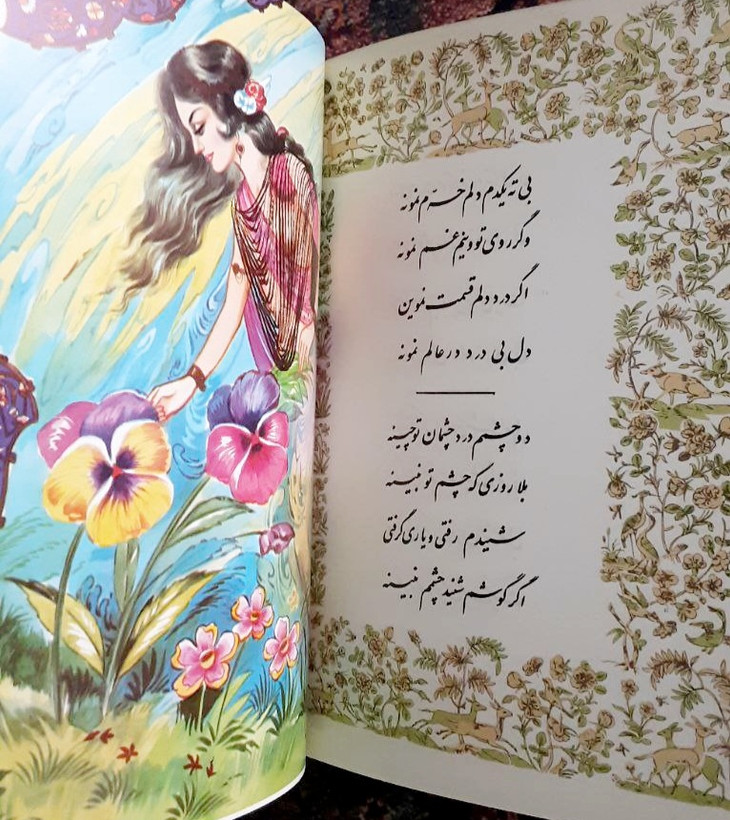 بی ته یکدم دلم خرّم نمونه
وگر روی تو وینم غم نمونه
اگر درد دلم قسمت نموین
دل بی درد در عالم نمونه
دو چشمم درد چشمان تو چینه
بلا روزی که چشم تو نبینه
شنیدم رفتی و یاری گرفتی
اگر گوشم شنید چشمم نبینه